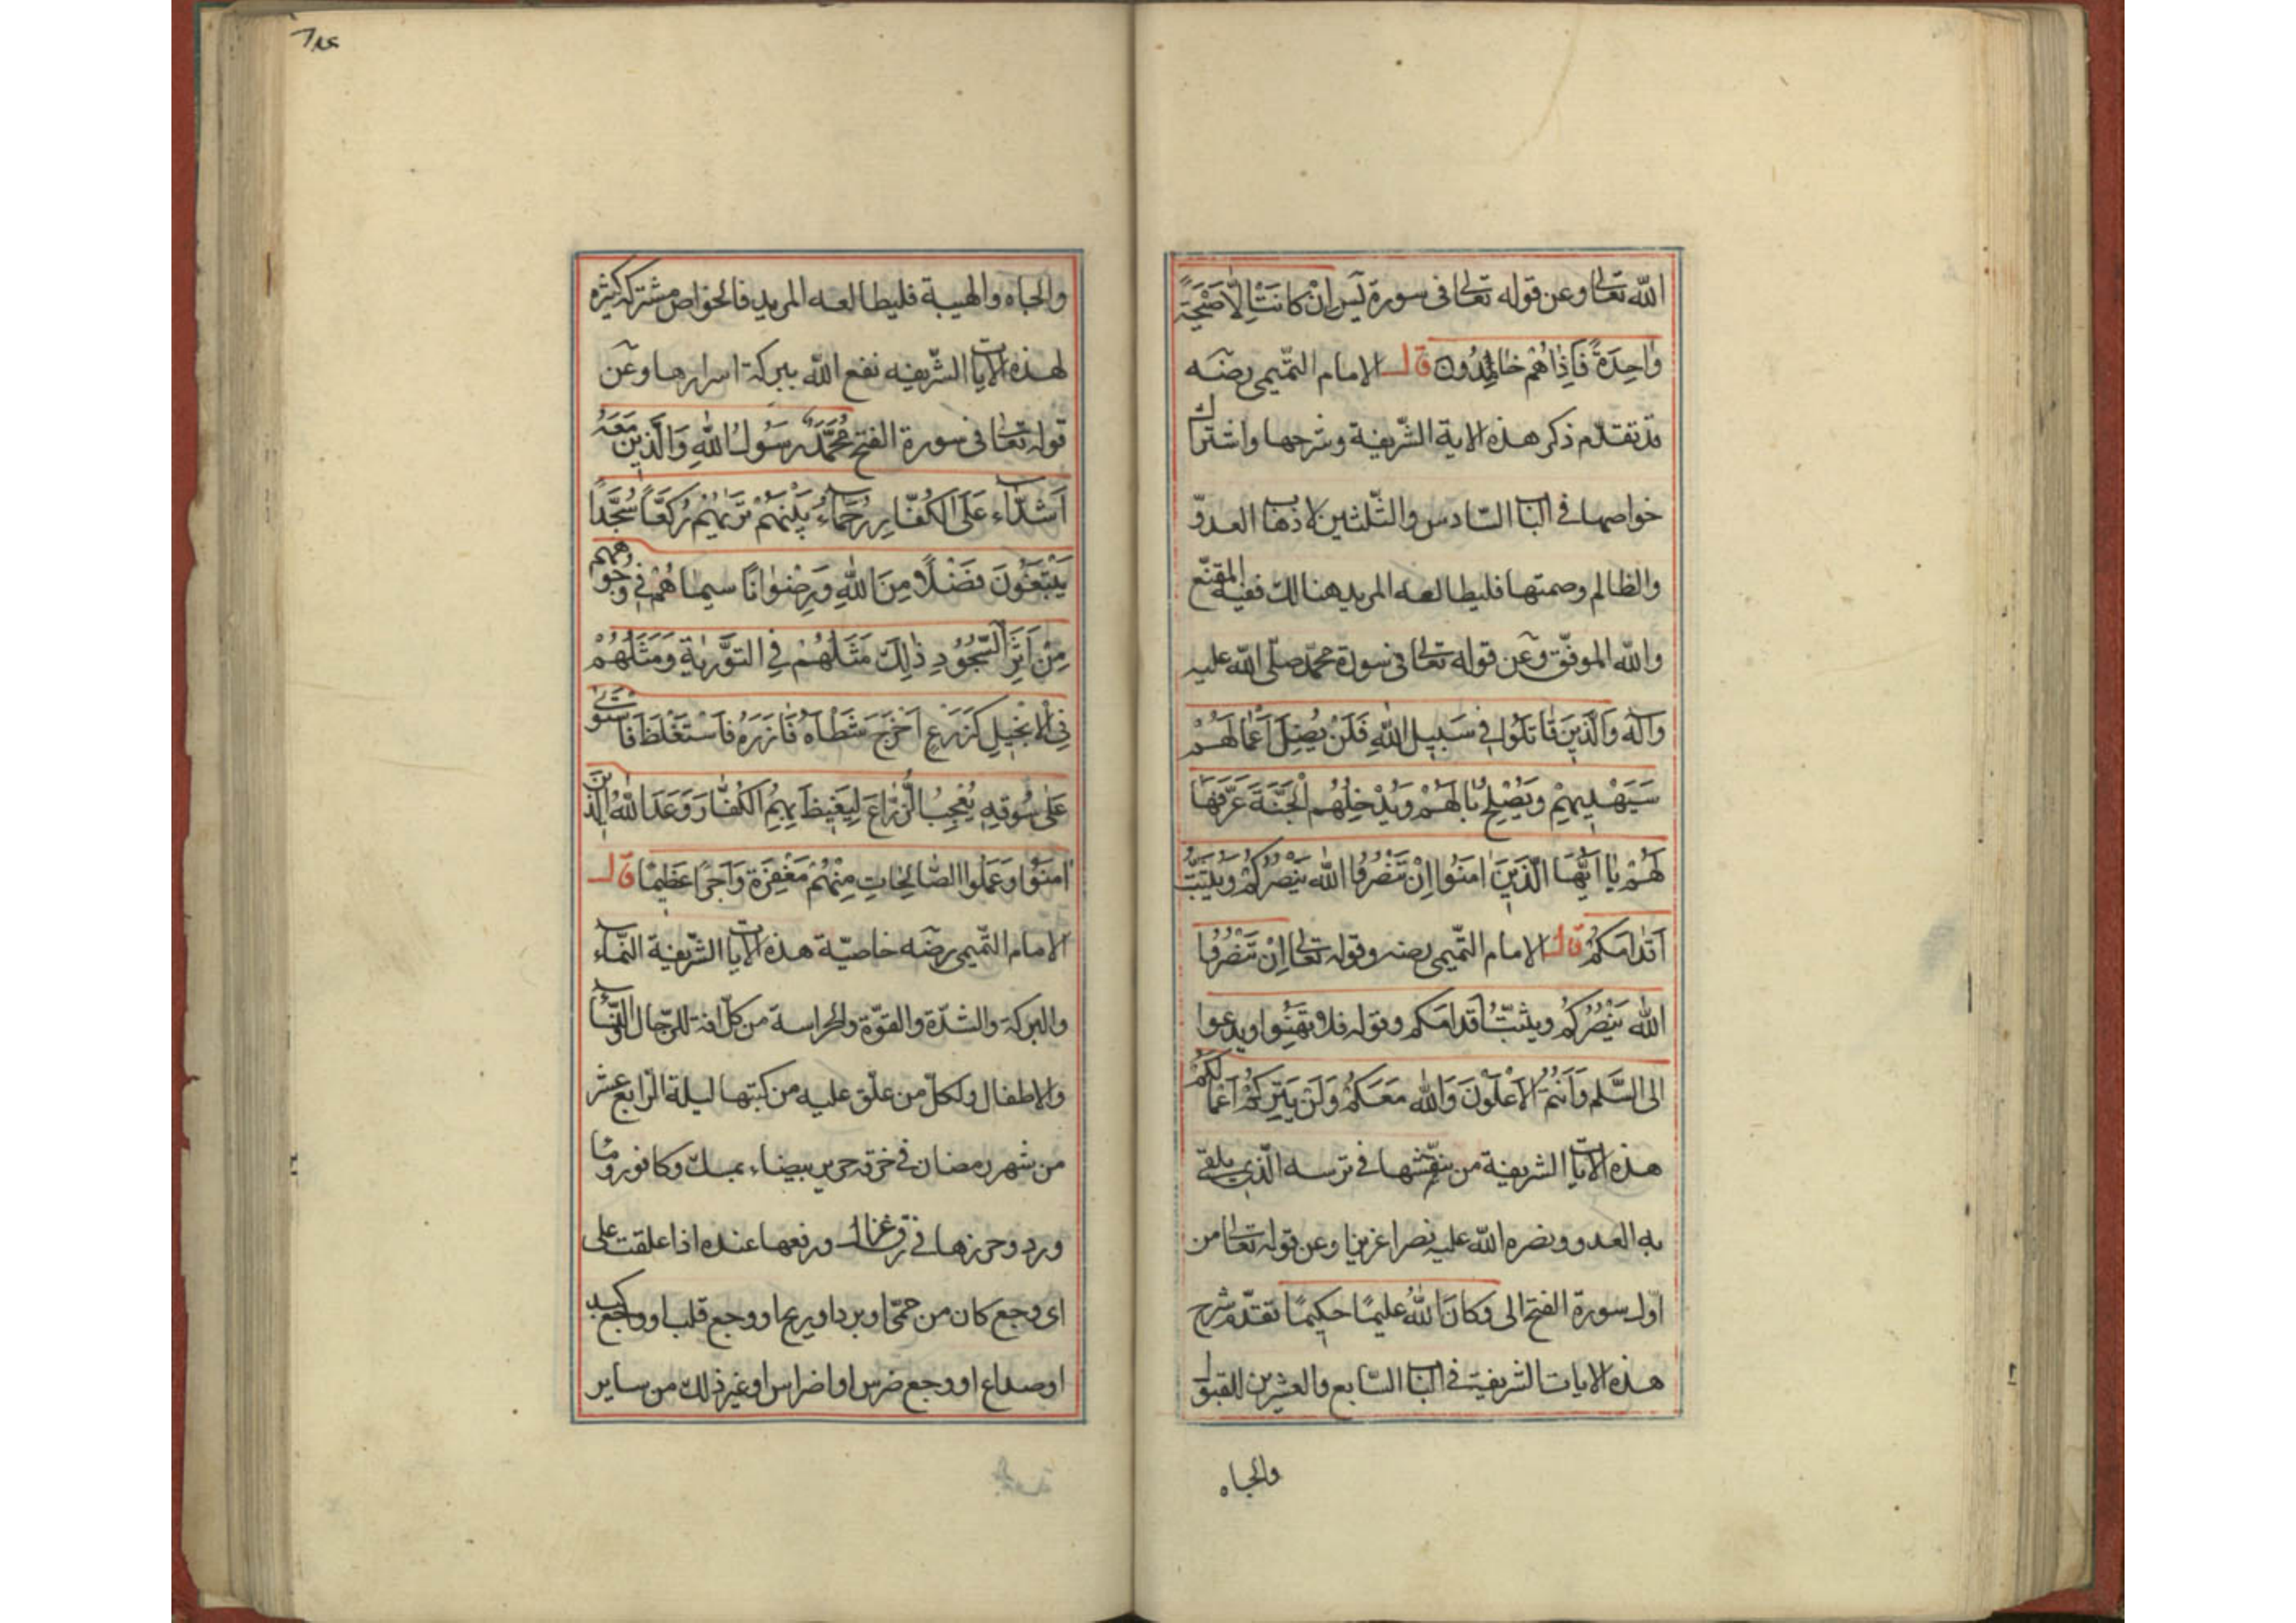 الله تعالى وعن قوله تعالى في سورة يس اِنْ كانَتْ اِلّا صَيْحَةً
واحِدَةً فَاِذا هُمْ خامِدُون قال الامام التميمي رضه
قد تقدّم ذكر هذه الاية الشّريفة وشرحها واشتراك
خواصها في الباب السّادس والثّلثين لاذهاب العدوّ
والظالم وصمتها فليطالعه المريد هنالك ففيه المقنع
والله الموفّق وعن قوله تعالى في سورة محمّد صلّى الله عليه
وآله وَالَّذينَ قاتَلُوا في سَبيلِ اللهِ فَلَنْ يُضِلَّ اَعْمالَهُمْ
سَيَهْديهِمْ وَيُصْلِحُ بالَهُمْ وَيُدْخِلُهُم الْجَنَّةَ عَرَّفَها
لَهُمْ يا اَيُّهَا الَّذينَ امَنُوا اِنْ تَنْصُرُوا اللهَ يَنْصُرْكُمْ وَيُثَبِّتْ
اَقْدامَكُمْ قال الامام التّميمي رضه وقوله تعالى اِنْ تَنْصُرُوا
الله يَنْصُرْكُمْ ويثبّتْ اَقدامَكم وقوله فلا تَهِنُوا ويدعوا
الى السَّلم وَاَنْتُمُ الاَعْلَوْنَ وَاللهُ مَعَكُمْ وَلَنْ يَتِرَكُمْ اَعْمالَكُمْ
هذه الايات الشريفة من نقشها في ترسه الّذي يلقى
به العدو ونصره الله عليه نصرا عزيزا وعن قوله تعالى من
اول سورة الفتح الى وَكانَ اللهُ عليمًا حكيمًا تقدّم شرح
هذه الايات الشريفة في الباب السّابع والعشرين للقبول
والجاه
٦٨٤
والجاه والهيبة فليطالعه المريد فالخواص مشتركة كثيرة
لهذه الايات الشّريفه نفع الله ببركة اسرارها وعن
قوله تعالى في سورة الفتح مُحَمَّدٌ رَسُولُ اللهِ وَالَّذينَ مَعَهُ
اَشِدّاءُ عَلَى الْكُفّارِ رُحَماءُ بَيْنَهُمْ تَريهُمْ رُكَّعًا سُجَّدًا
يَبْتَغُونَ فَضْلًا مِنَ اللهِ وَرِضْوانًا سيماهُمْ في وُجُوهِهِم
مِنْ اَثَرِ السُّجُودِ ذلِكَ مَثَلُهُمْ فِي التَّوْريةِ وَمَثَلُهُمْ
فِي الْاِنْجيلِ كَزَرْعٍ اَخْرَجَ شَطْاَهُ فَازَرَهُ فَاسْتَغْلَظَ فَاسْتَوى
عَلى سُوقِهِ يُعْجِبُ الزُّرّاعَ لِيَغيظَ بِهِمُ الْكُفّارَ وَعَدَ اللهُ الَّذينَ
امَنُوا وَعَمِلُوا الصّالِحاتِ مِنْهُمْ مَغْفِرَةً وَاَجْرًا عَظيمًا قال
الامام التّميمي رضه خاصيّة هذه الايات الشّريفة النّماء
والبركة والشدّة والقوّة والحراسة من كلّ افة للرّجال والنّساء
والاطفال ولكلّ من علّق عليه من كتبها ليلة الرّابع عشر
من شهر رمضان في خرقة حرير بيضاء بمسك وكافور وماء
ورد وحرزها في رق غزال ورفعها عنده اذا علقت على
اى وجع كان من حمّى او برد او ريح او وجع قلب او وجع كبد
او صداع او وجع ضرس او اضراس او غير ذلك من ساير